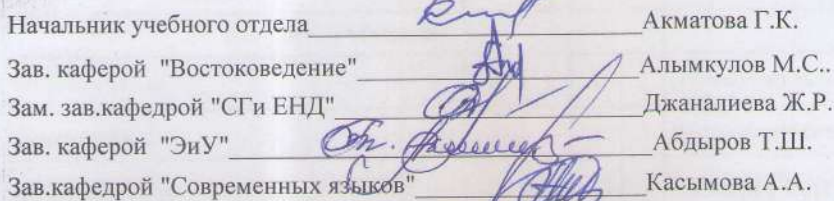 Начальник учебного отдела Акматова Г.К.
Зав. каферой "Востоковедение" Алымкулов М.С..
Зам. зав.кафедрой "СГи ЕНД" Джаналиева Ж.Р.
Зав. каферой "ЭиУ" Абдыров Т.Ш.
Зав.кафедрой "Современных языков" Касымова А.А.